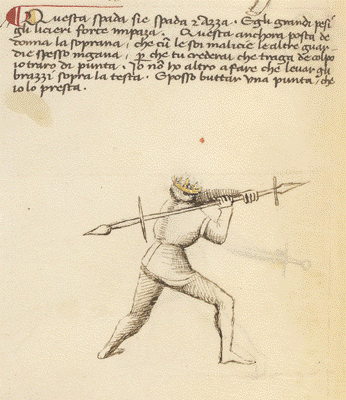 Questa spada sie spada e Azza. E gli grandi pesi
gli liçieri forte impaza. Questa anchora posta de
donna la soprana, che cū le soi malicie le altre guar
die spesso ingana, p che tu crederai che traga de colpo
io traro di punta. Io nō ho altro a fare che levar gli
brazzi sopra la testa. E posso buttar una punta, che
io lo presta.